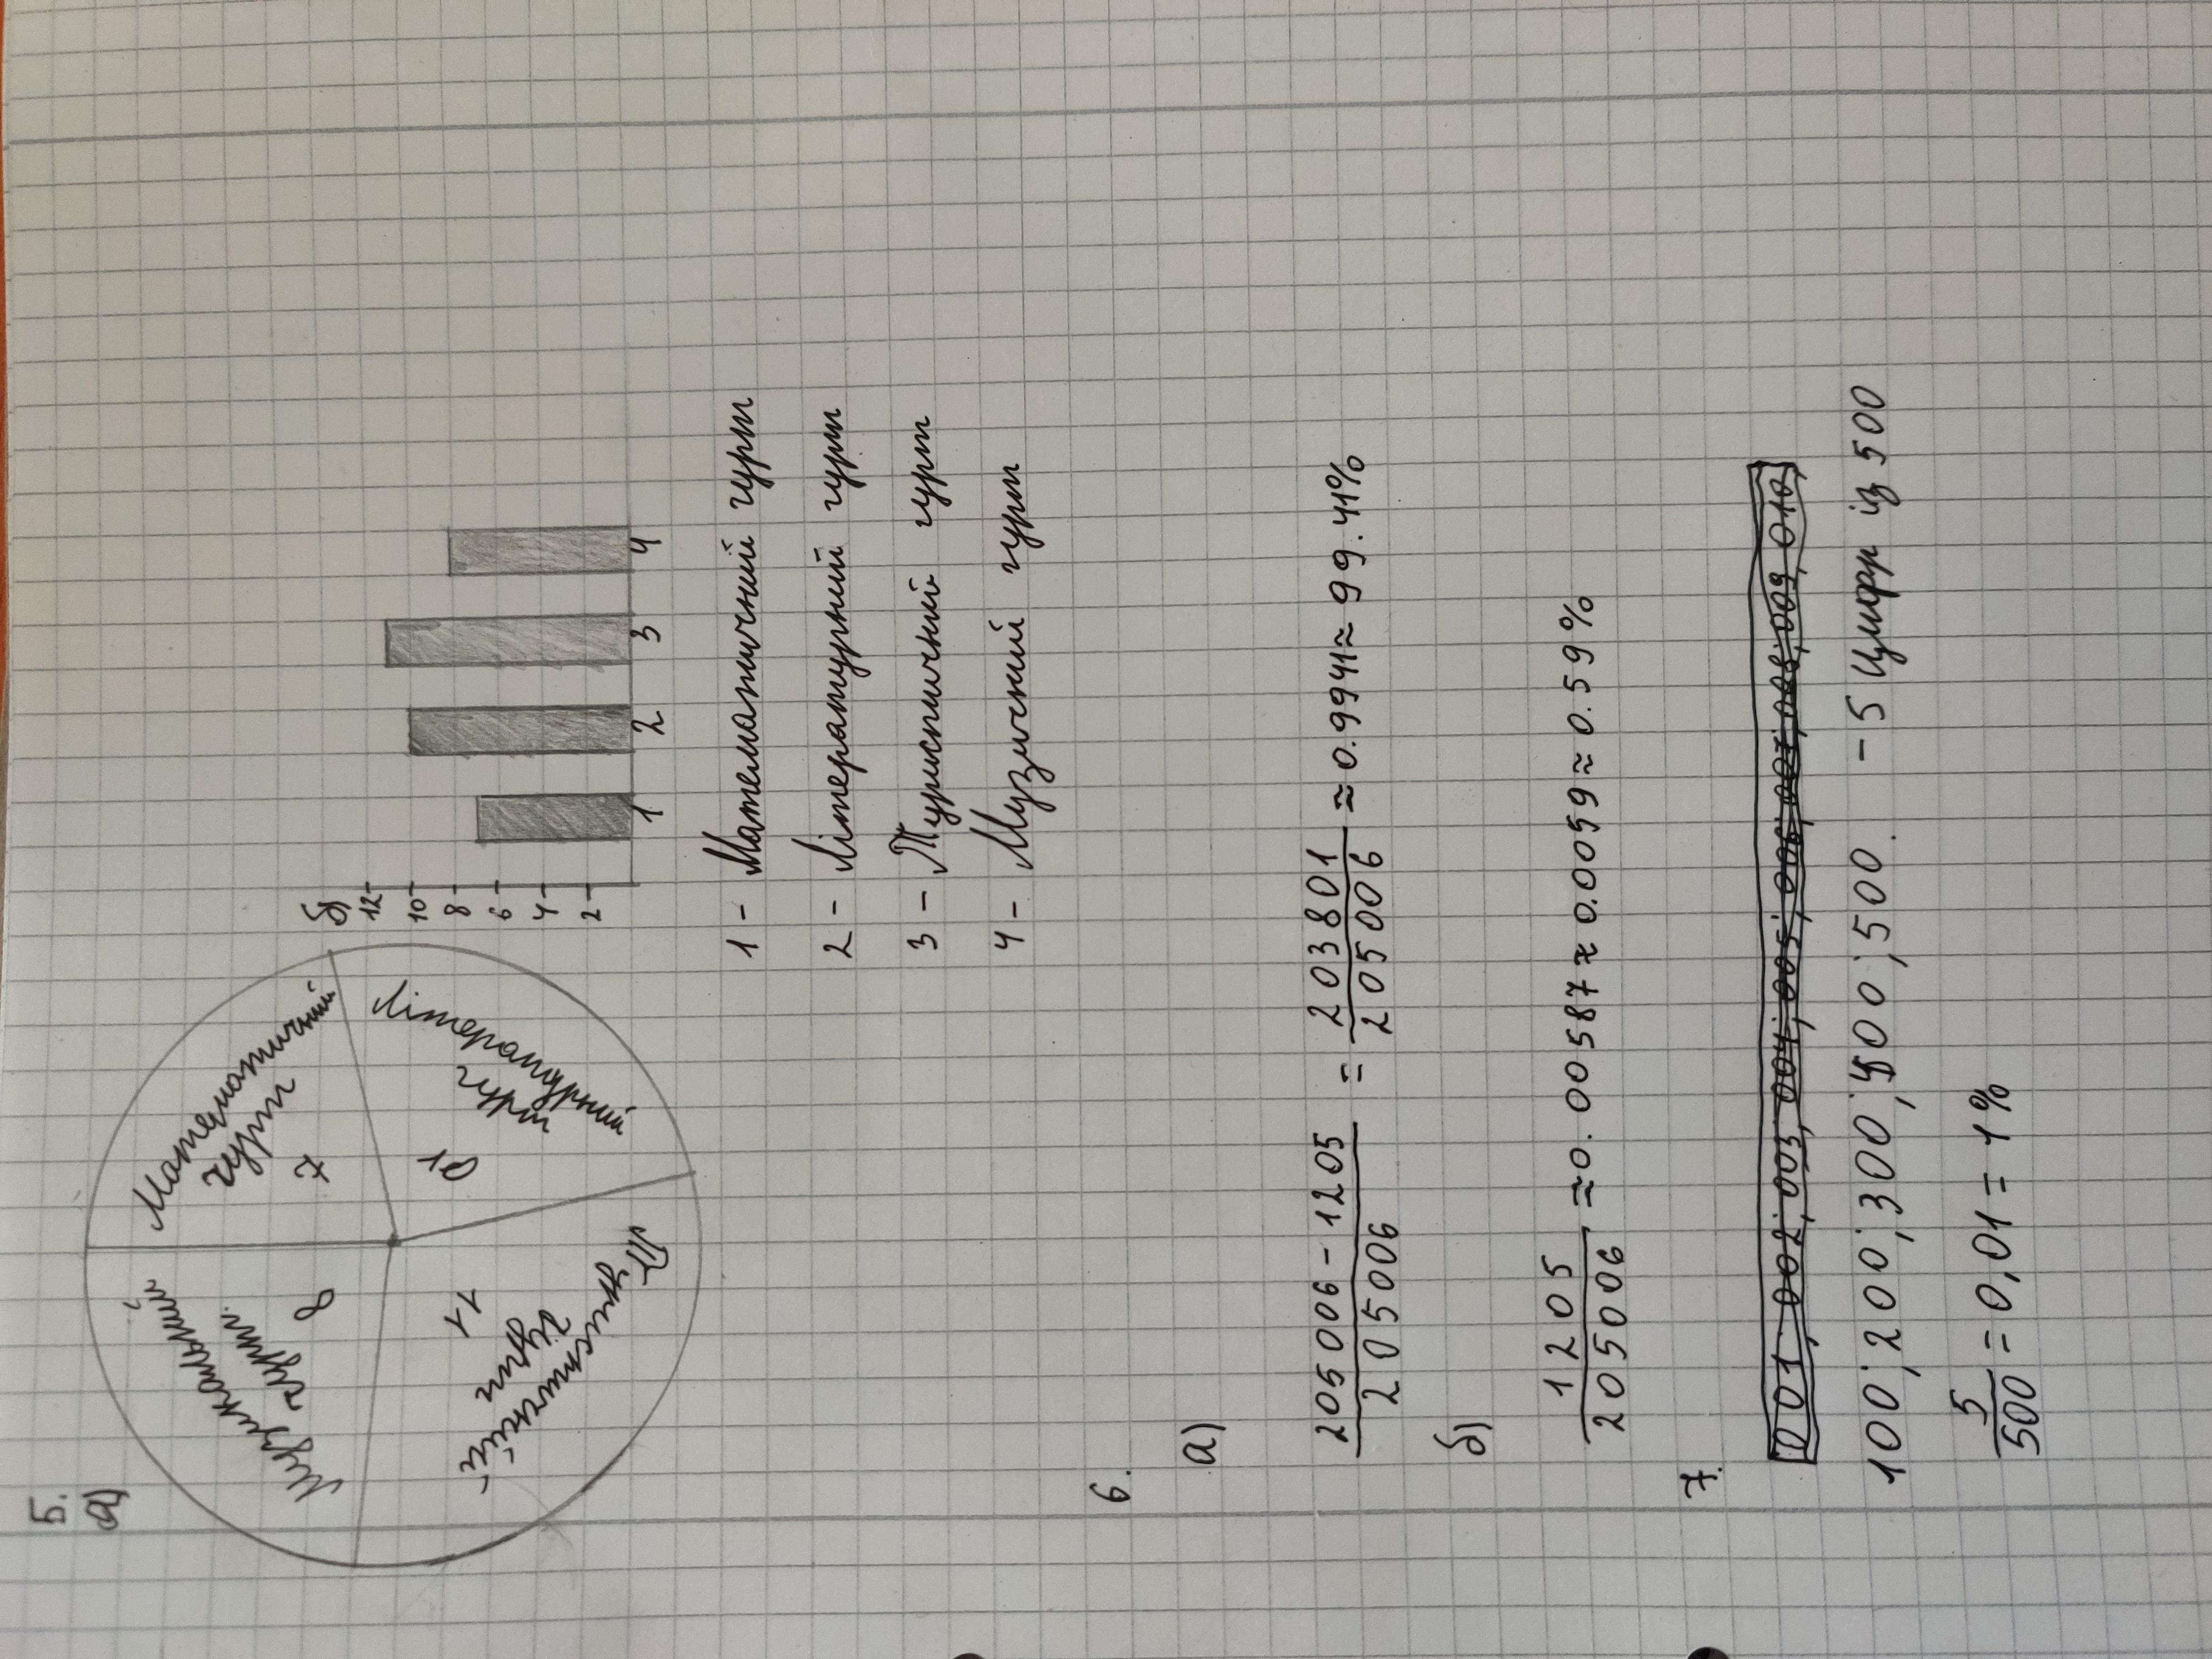 5.
а)
Математичний
гурт
7
Літературний
гурт
10
Туристичний
гурт
11
Музикальний
гурт
8
б)
12
10
8
6
4
2
1 2 3 4
1 - Математичний гурт
2 - Літературний гурт
3 - Туристичний гурт
4 - Музичний гурт
6.
а)
205006 - 1205 / 205006 = 203801 / 205006 ≈ 0.9941 ≈ 99.41%
б)
1205 / 205006 ≈ 0.00587 ≈ 0.0059 ≈ 0.59%
7.
001, 002; 003, 004; 005; 006, 007, 008, 009, 010,
100; 200; 300; 400; 500. - 5 Цифр із 500
5 / 500 = 0,01 = 1%